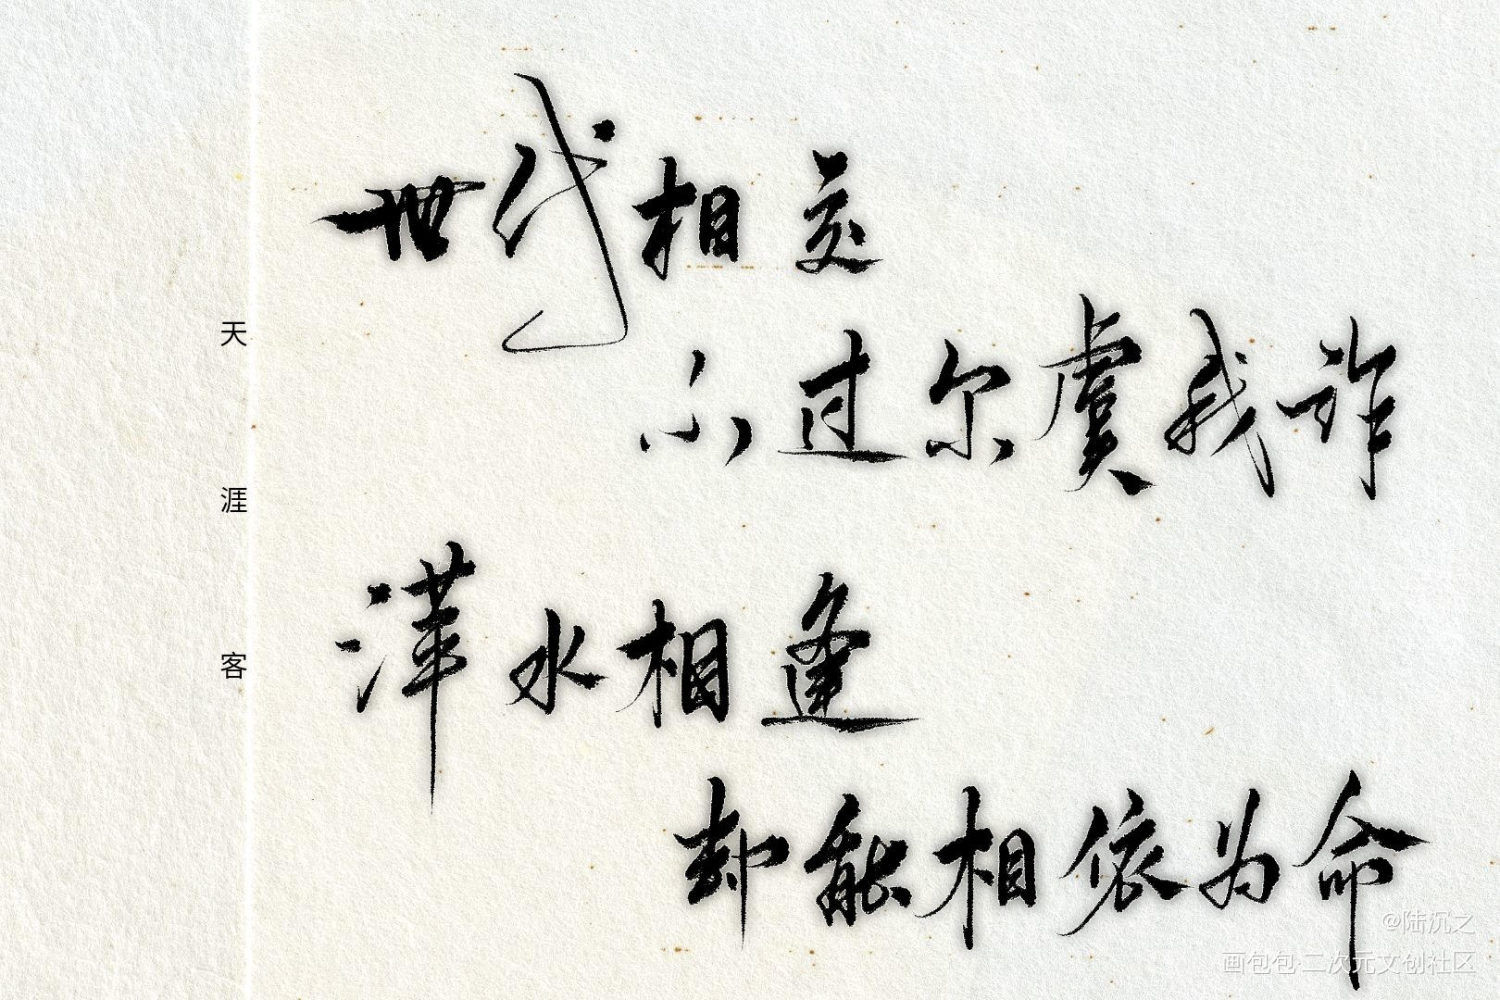 世代相交
不过尔虞我诈
萍水相逢
却能相依为命
天涯客
@陆沉之
画包包·二次元文创社区